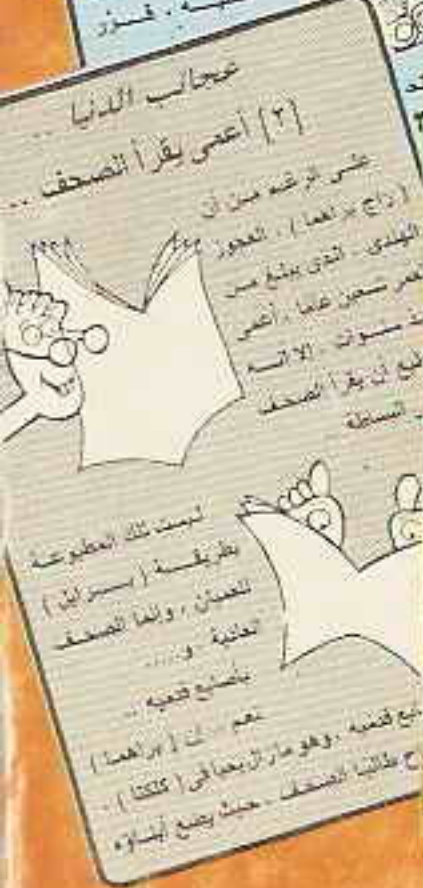 فــزر
عجائب الدنيا ..
[٢] أعمى يقرأ الصحف ..
على الرغم من أن
( راج براهما ) ، العجوز
الهندى ، الذى يبلغ من
العمر تسعين عاما ، أعمى
سنوات ، إلا أنــه
أن يقرأ الصحف
البساطة
ليست تلك المطبوعــة
بطريقــة ( بـــرايل )
للعميان ، وإنما الصحــف
العادية . و.....
بأصابع قدميه ..
نعم .. إن ( براهما )
قدميه ، وهو مازال يحيا فى ( كلكتا ) ،
طالبا الصحــف ، حيث يضع أبنــاؤه